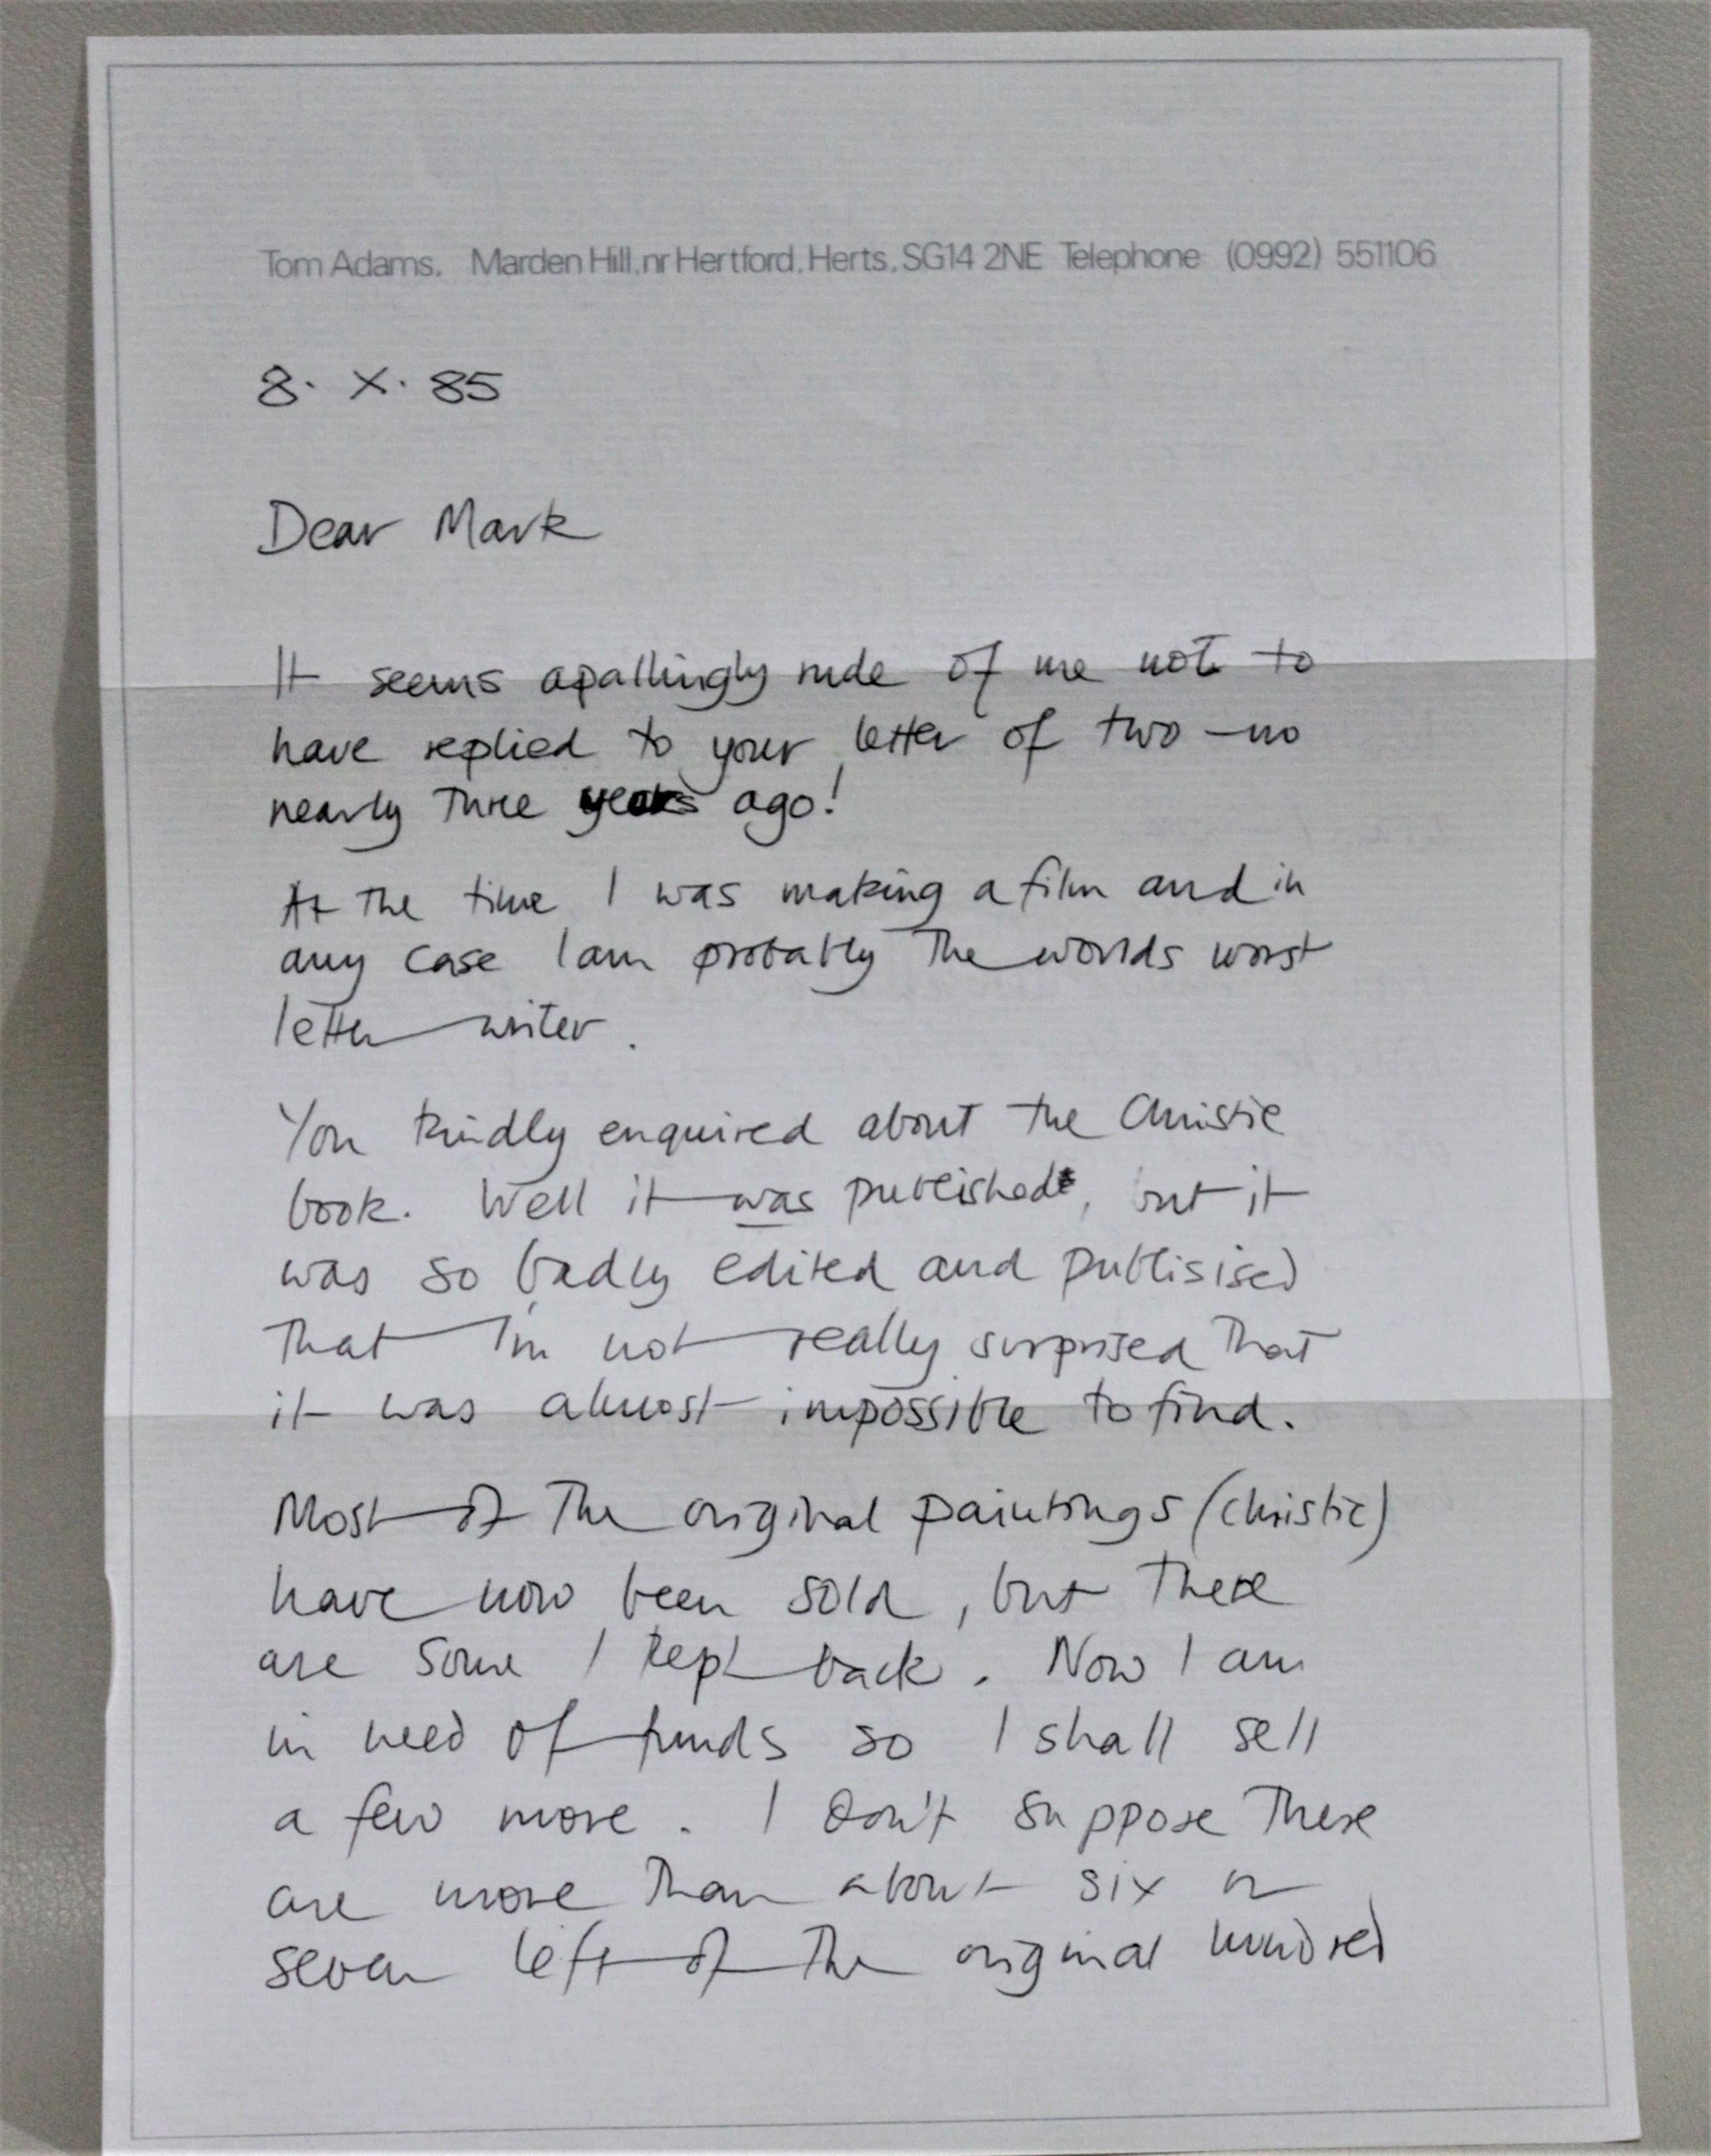 Tom Adams. Marden Hill, nr Hertford, Herts, SG14 2NE Telephone (0992) 551106
8. X. 85
Dear Mark
It seems apallingly rude of me not to
have replied to your letter of two – no
nearly three years ago!
At the time I was making a film and in
any case I am probably the worlds worst
letter writer.
You kindly enquired about the Christie
book. Well it was published, but it
was so badly edited and publisised
that I'm not really surprised that
it was almost impossible to find.
Most of the original paintings (Christie)
have now been sold, but there
are some I kept back. Now I am
in need of funds so I shall sell
a few more. I don't suppose there
are more than about six or
seven left of the original hundred